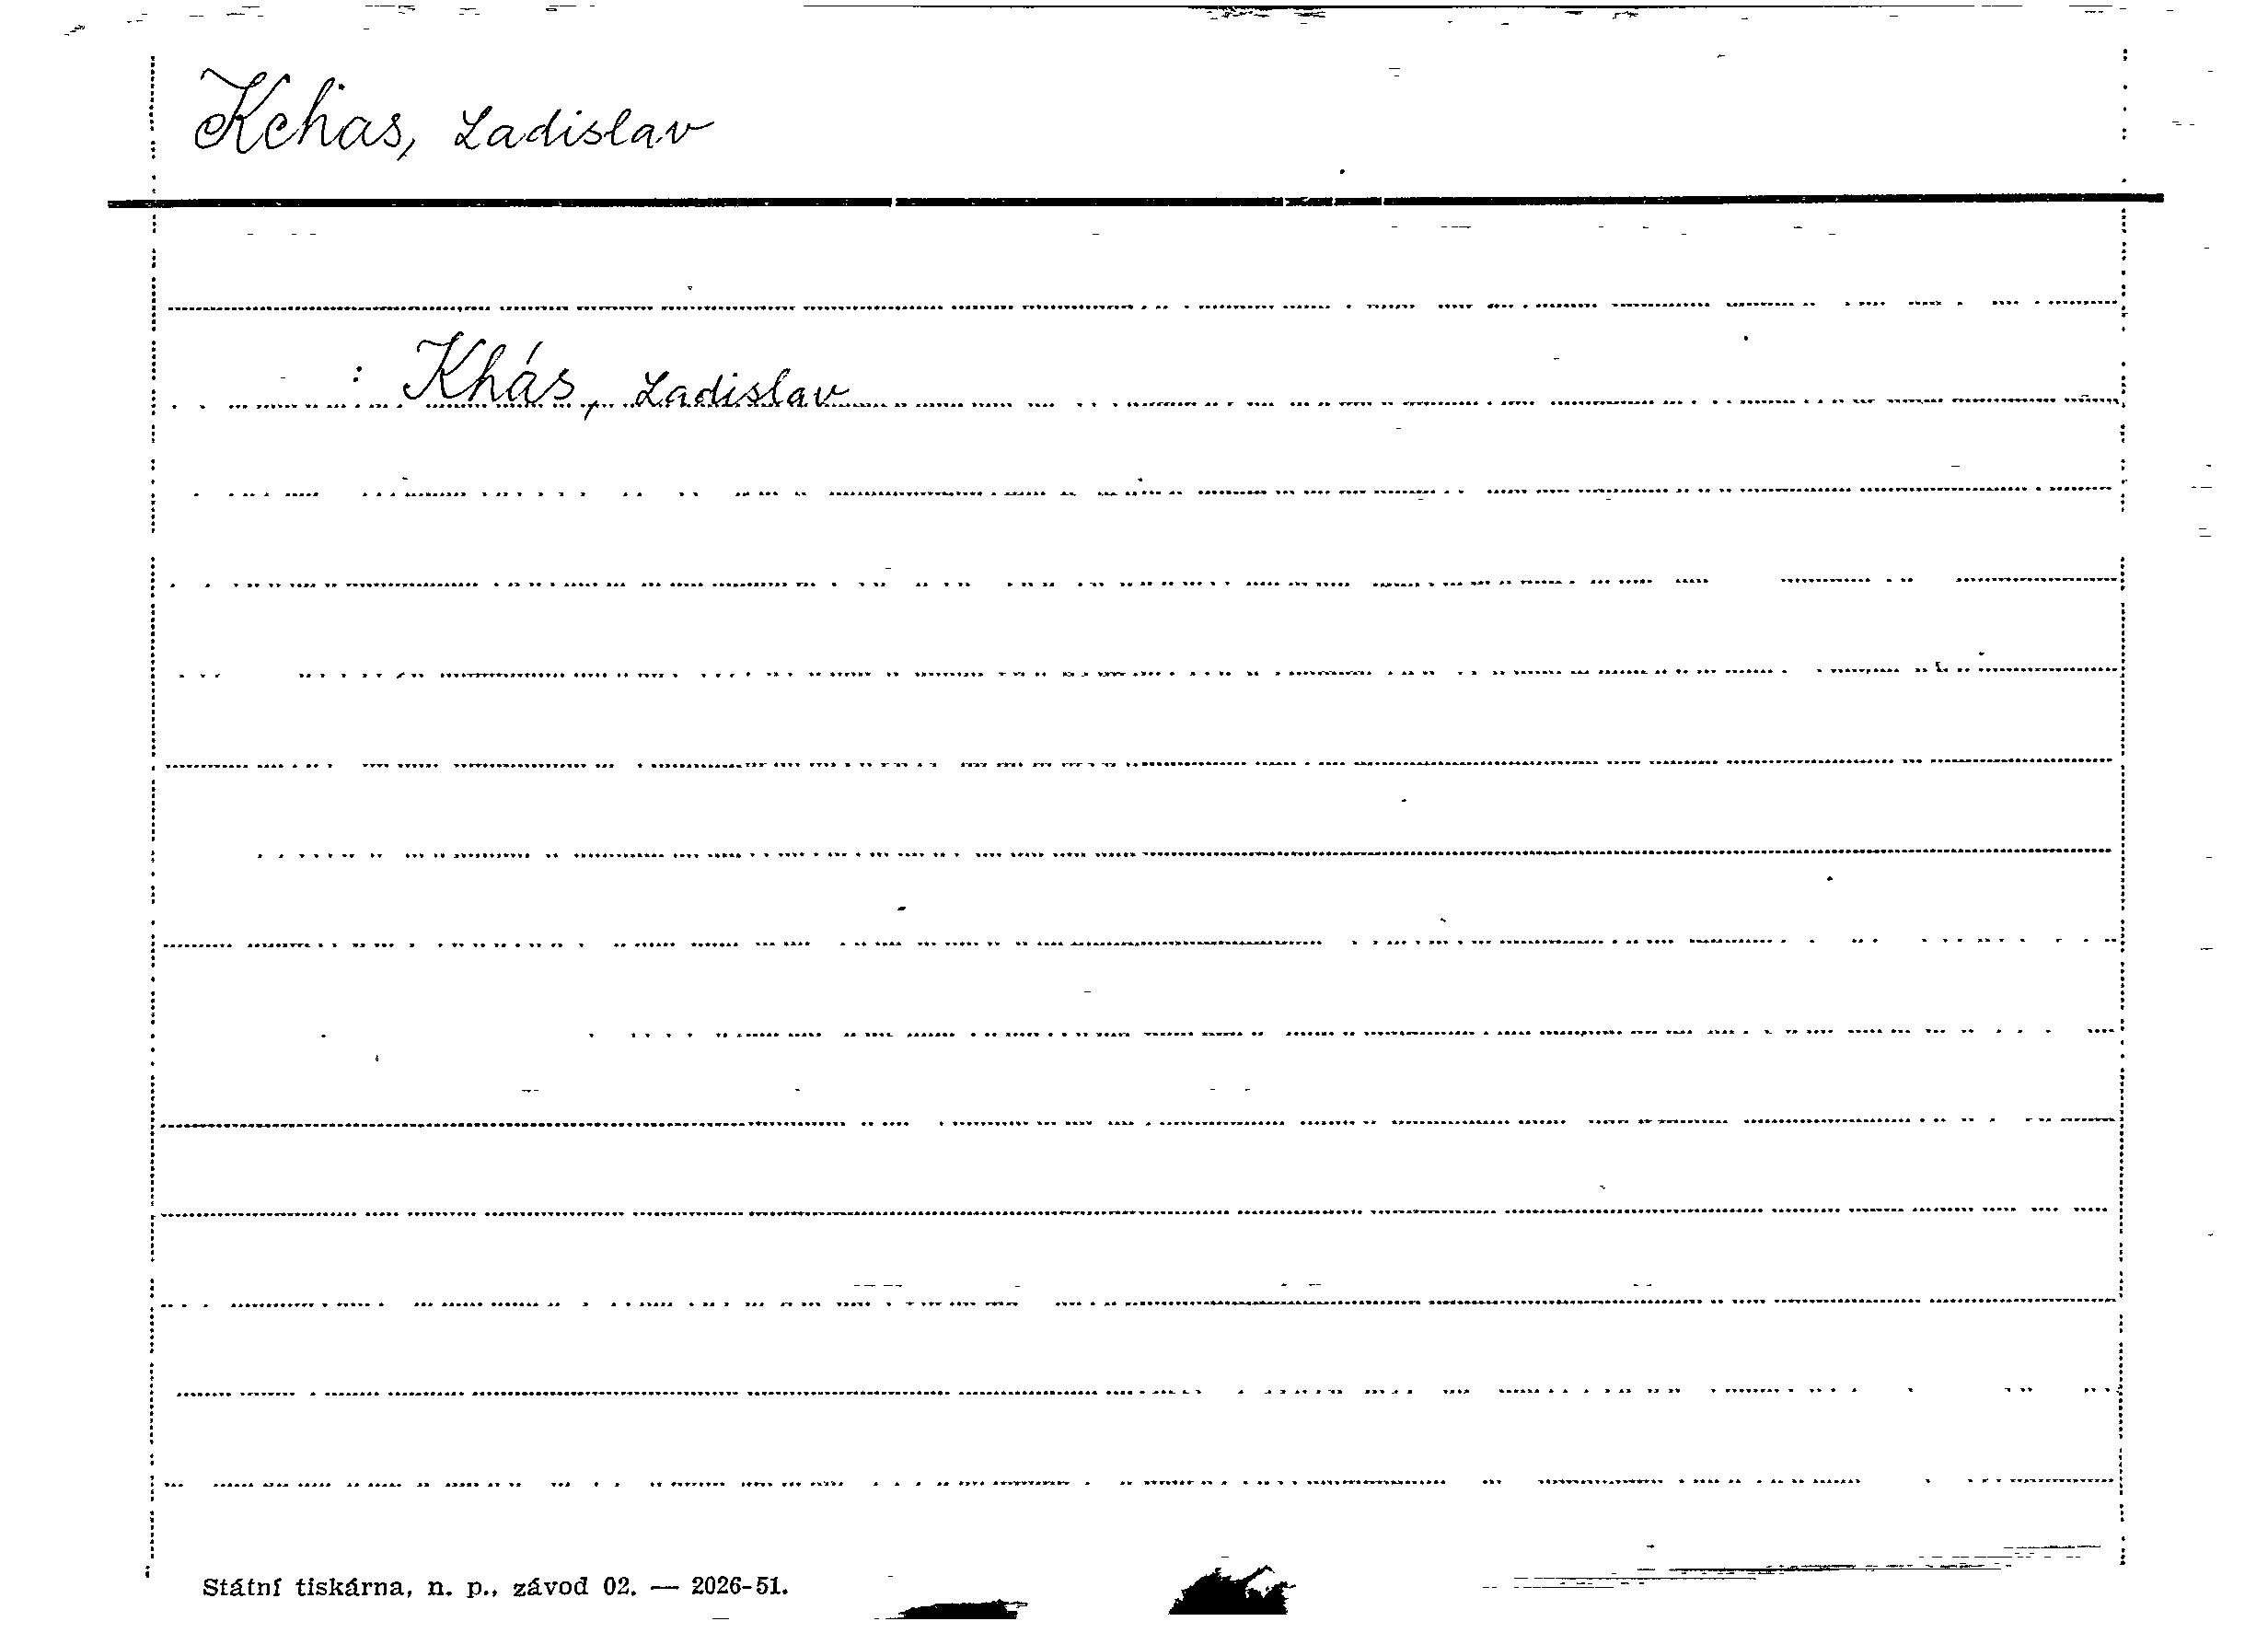 Kchas, Ladislav
: Khás, Ladislav
Státní tiskárna, n. p., závod 02. — 2026-51.